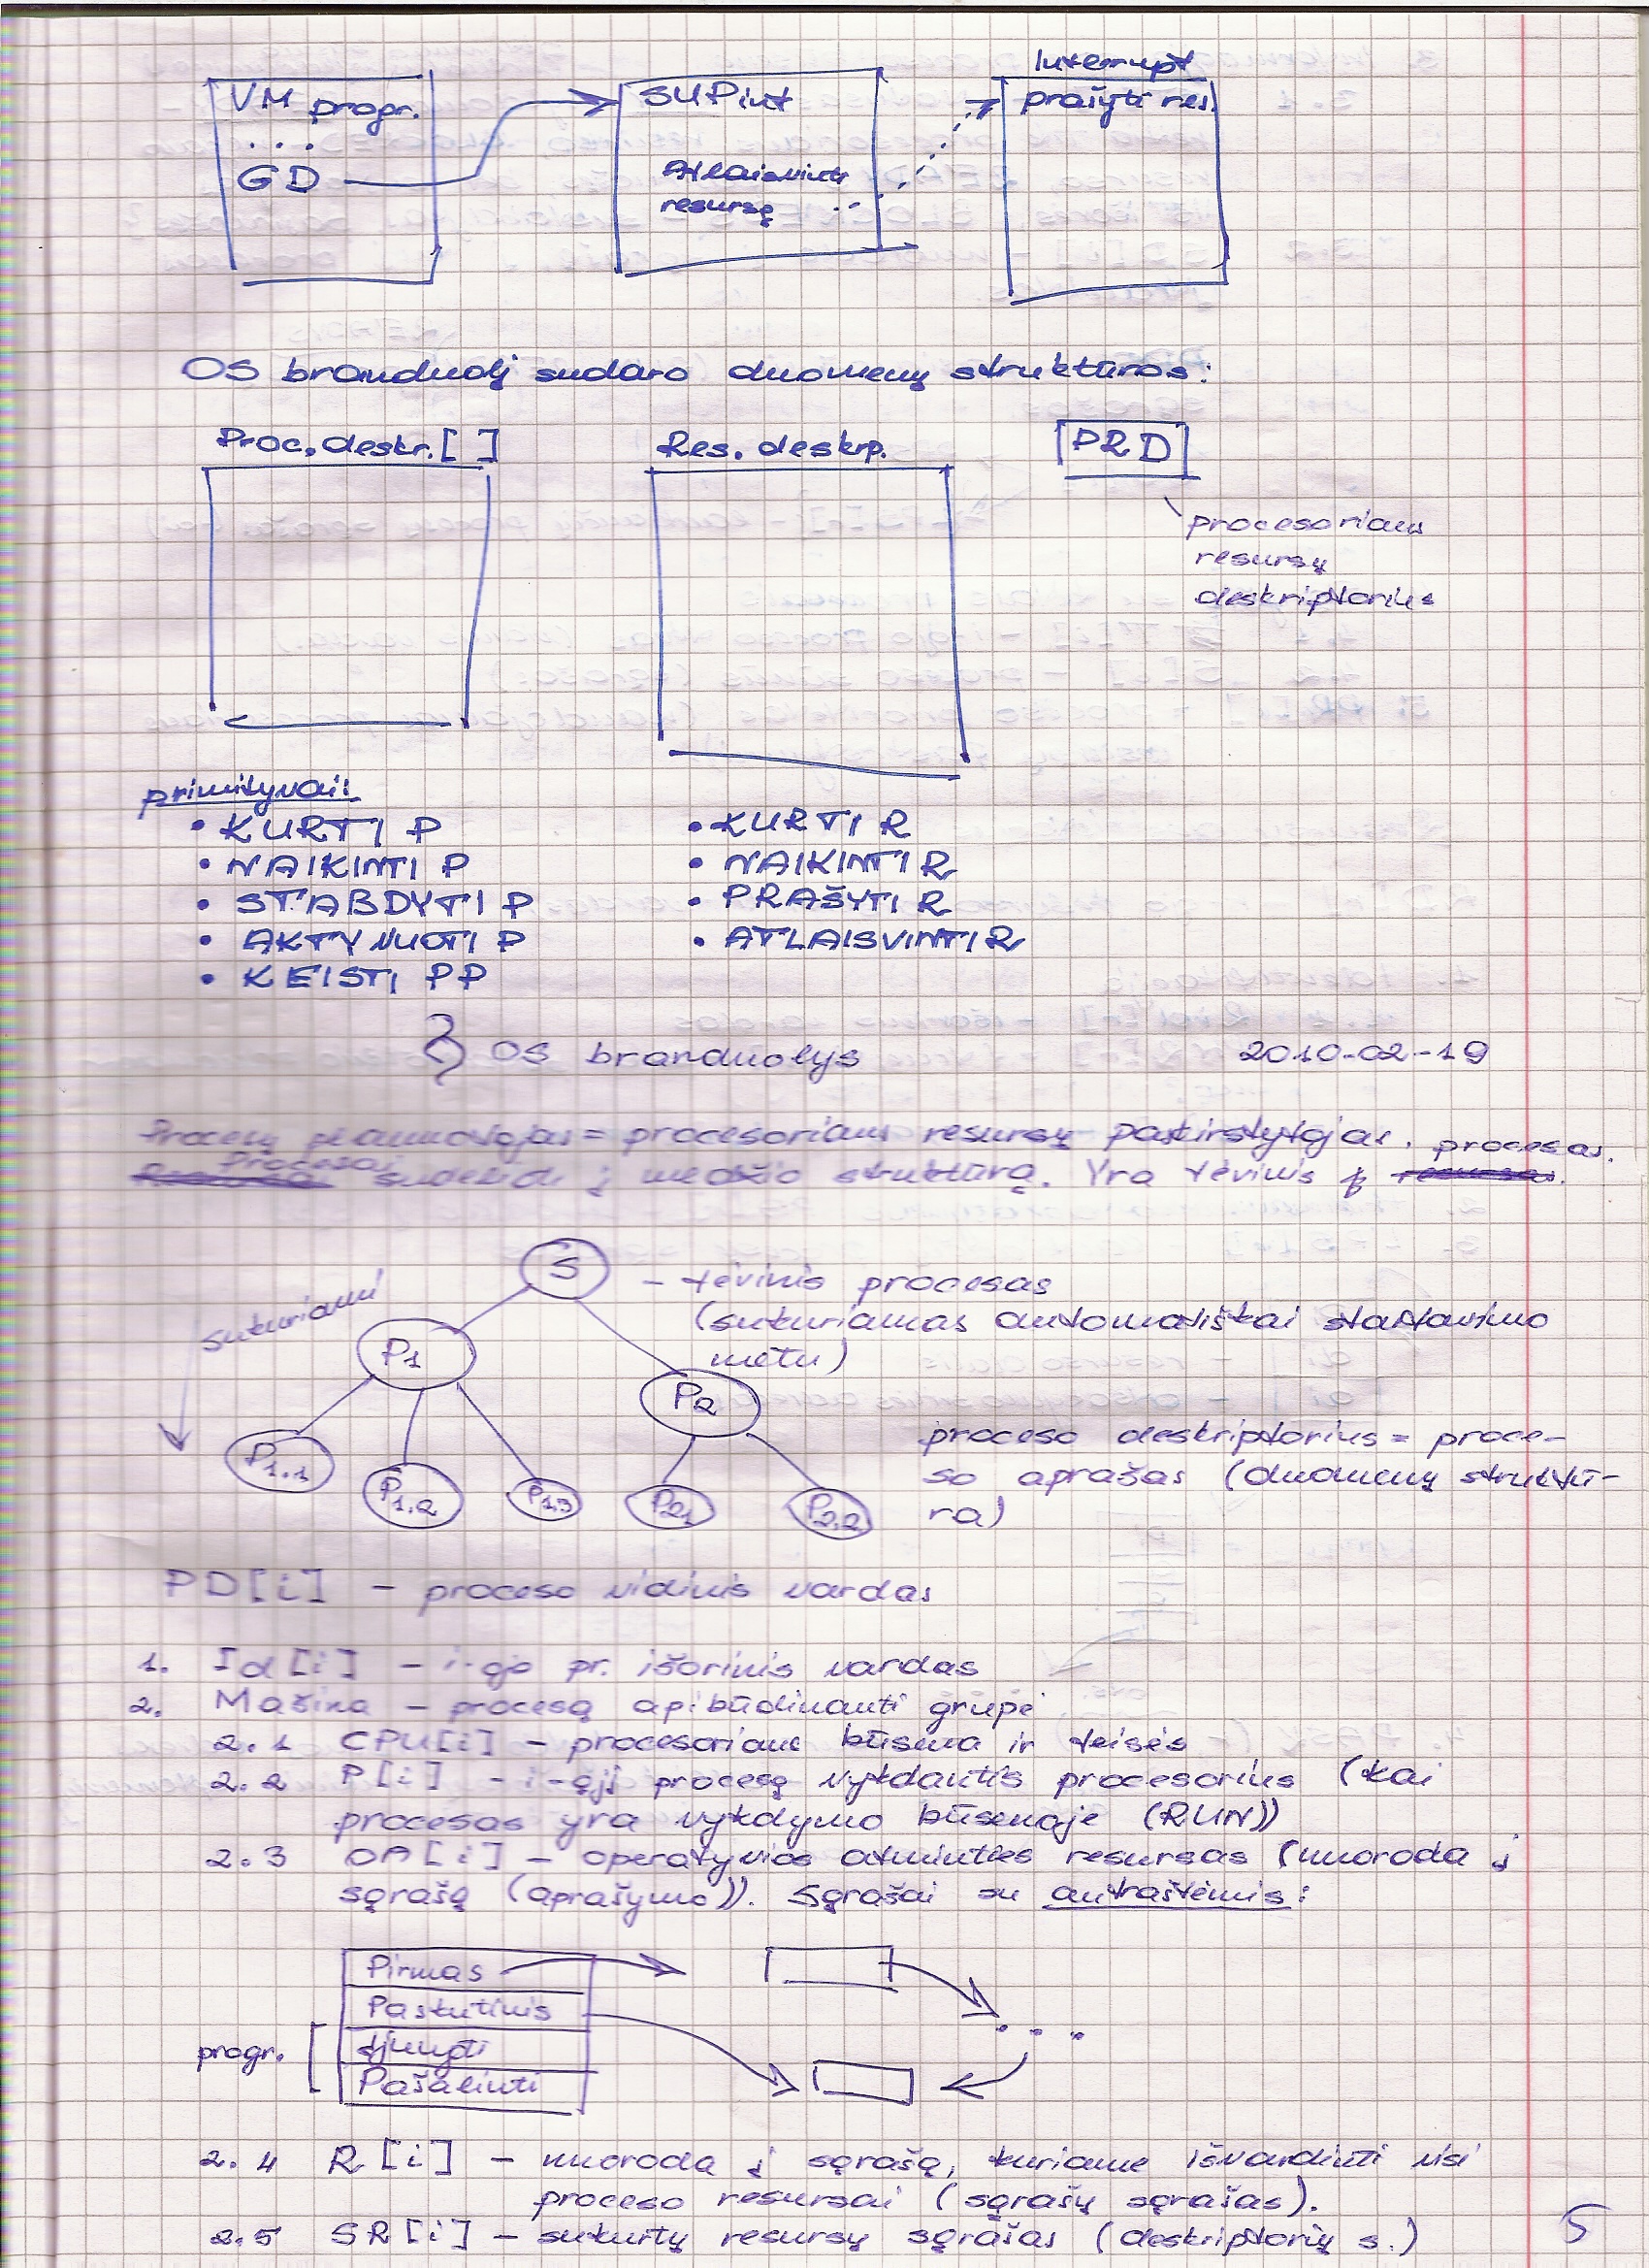 VM progr.
...
GD
SUPint
Atlaisvinti
resursą
Interrupt
prašyti res.
OS branduolį sudaro duomenų struktūros:
Proc. deskr. [ ]
Res. deskrp.
PRD
procesoriaus
resursų
deskriptorius
primityvai:
• KURTI P
• NAIKINTI P
• STABDYTI P
• AKTYVUOTI P
• KEISTI PP
• KURTI R
• NAIKINTI R
• PRAŠYTI R
• ATLAISVINTI R
OS branduolys 2010-02-19
Procesų planuotojas = procesoriaus resursų paskirstytojas.
Procesai sudėlioti į medžio struktūrą. Yra tėvinis procesas.
sukuriami
S
P1
P2
P1.1
P1.2
P1.3
P21
P2.2
– tėvinis procesas
(sukuriamas automatiškai startavimo
metu)
proceso deskriptorius = proce-
so aprašas (duomenų struktū-
ra)
PD[i] – proceso vidinis vardas
1. Id[i] – i-ojo pr. išorinis vardas
2. Mašina – procesą apibūdinanti grupė
2.1 CPU[i] – procesoriaus būsena ir teisės
2.2 P[i] – i-ąjį procesą vykdantis procesorius (kai
procesas yra vykdymo būsenoje (RUN))
2.3 OA[i] – operatyvios atminties resursas (nuoroda į
sąrašą (aprašymo)). Sąrašai su antraštėmis:
Pirmas
Paskutinis
Įjungti
Pašalinti
progr.
...
2.4 R[i] – nuoroda į sąrašą, kuriame išvardinti visi
proceso resursai (sąrašų sąrašas).
2.5 SR[i] – sukurtų resursų sąrašas (deskriptorių s.)
5